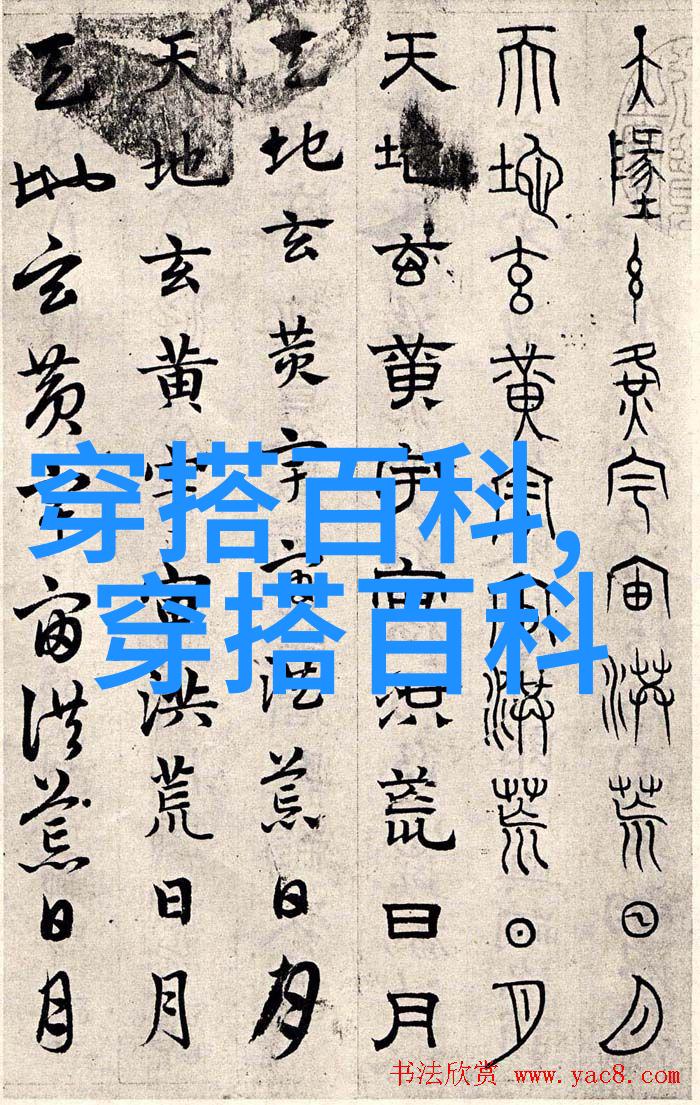 天地玄黄宇宙洪荒日月
天地玄黄宇宙洪荒日月
天地玄黄宇宙洪荒日月
天地玄黄宇宙洪荒日月
天地玄黄宇宙洪荒日月
天地玄黄宇宙洪荒日月
穿搭百科,
穿搭百科
书法欣赏 www.yac8.com